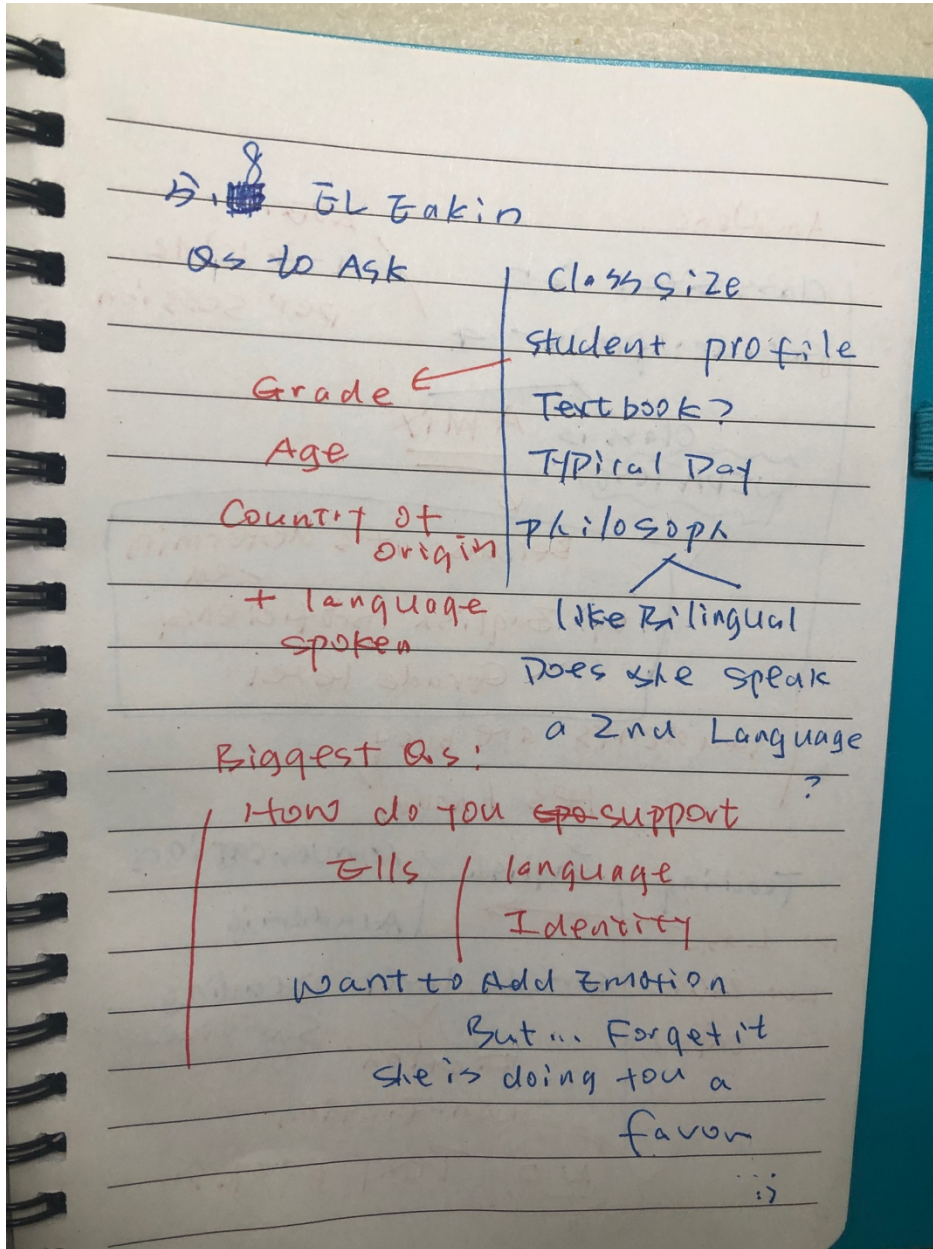 5.8 EL Eakin
Qs to Ask
Class size
student profile
Grade
Textbook?
Age
Typical Day
Country of
origin
philosoph
+ language
spoken
like Bilingual
Does she speak
a 2nd Language
?
Biggest Qs:
How do you spo support
Ells
language
Identity
want to Add Emotion
But... Forget it
she is doing you a
favor
:)